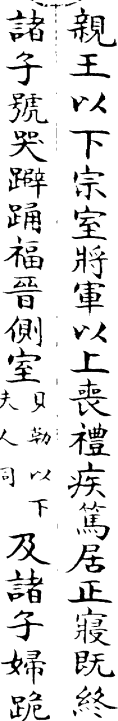 親王以下宗室將軍以上喪禮疾篤居正寢既終
諸子號哭躃踊福晉側室貝勒以下夫人同及諸子婦跪